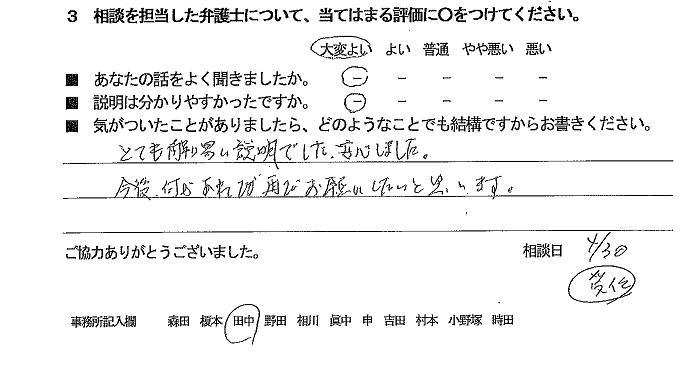 3 相談を担当した弁護士について、当てはまる評価に〇をつけてください。
大変よい よい 普通 やや悪い 悪い
■ あなたの話をよく聞きましたか。 － － － － －
■ 説明は分かりやすかったですか。 － － － － －
■ 気がついたことがありましたら、どのようなことでも結構ですからお書きください。
とても解り易い説明でした、安心しました。
今後、何かあれば再びお願いしたいと思います。
ご協力ありがとうございました。 相談日 4/30
受任
事務所記入欄 森田 榎本 田中 野田 相川 眞中 申 吉田 村本 小野塚 時田